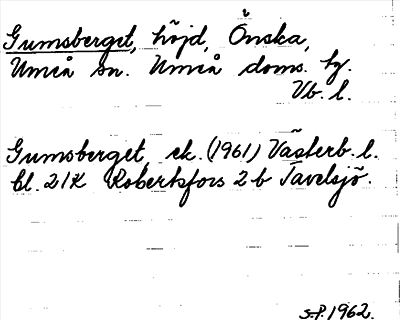 Gumsberget, höjd, Önska,
Umeå sn. Umeå doms. hg.
Vb. l.
Gumsberget, ek. (1961) Västerb. l.
bl. 21K Robertsfors 2 b Tavelsjö.
S.P. 1962.